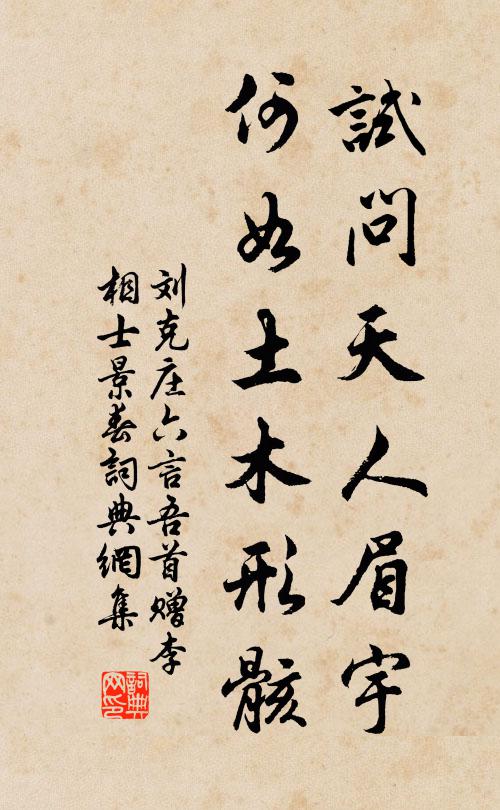 試問天人眉宇
何如土木形骸
刘克庄六言吾首贈李
相士景春詞典網集
詞典
网印